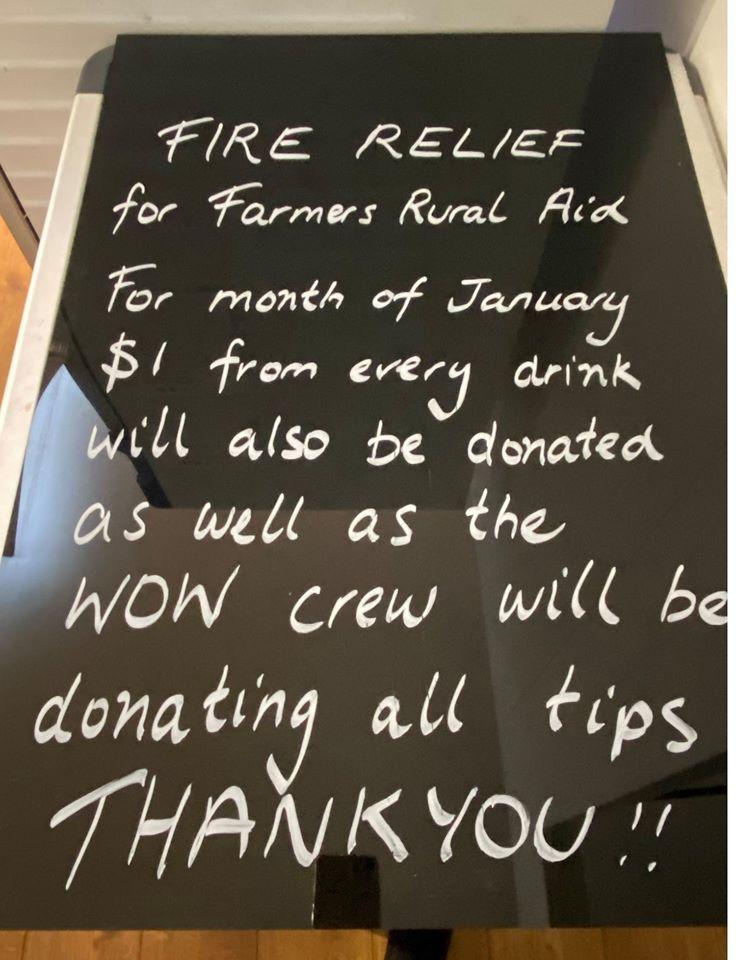 FIRE RELIEF
for Farmers Rural Aid
For month of January
$1 from every drink
will also be donated
as well as the
WOW crew will be
donating all tips
THANKYOU!!